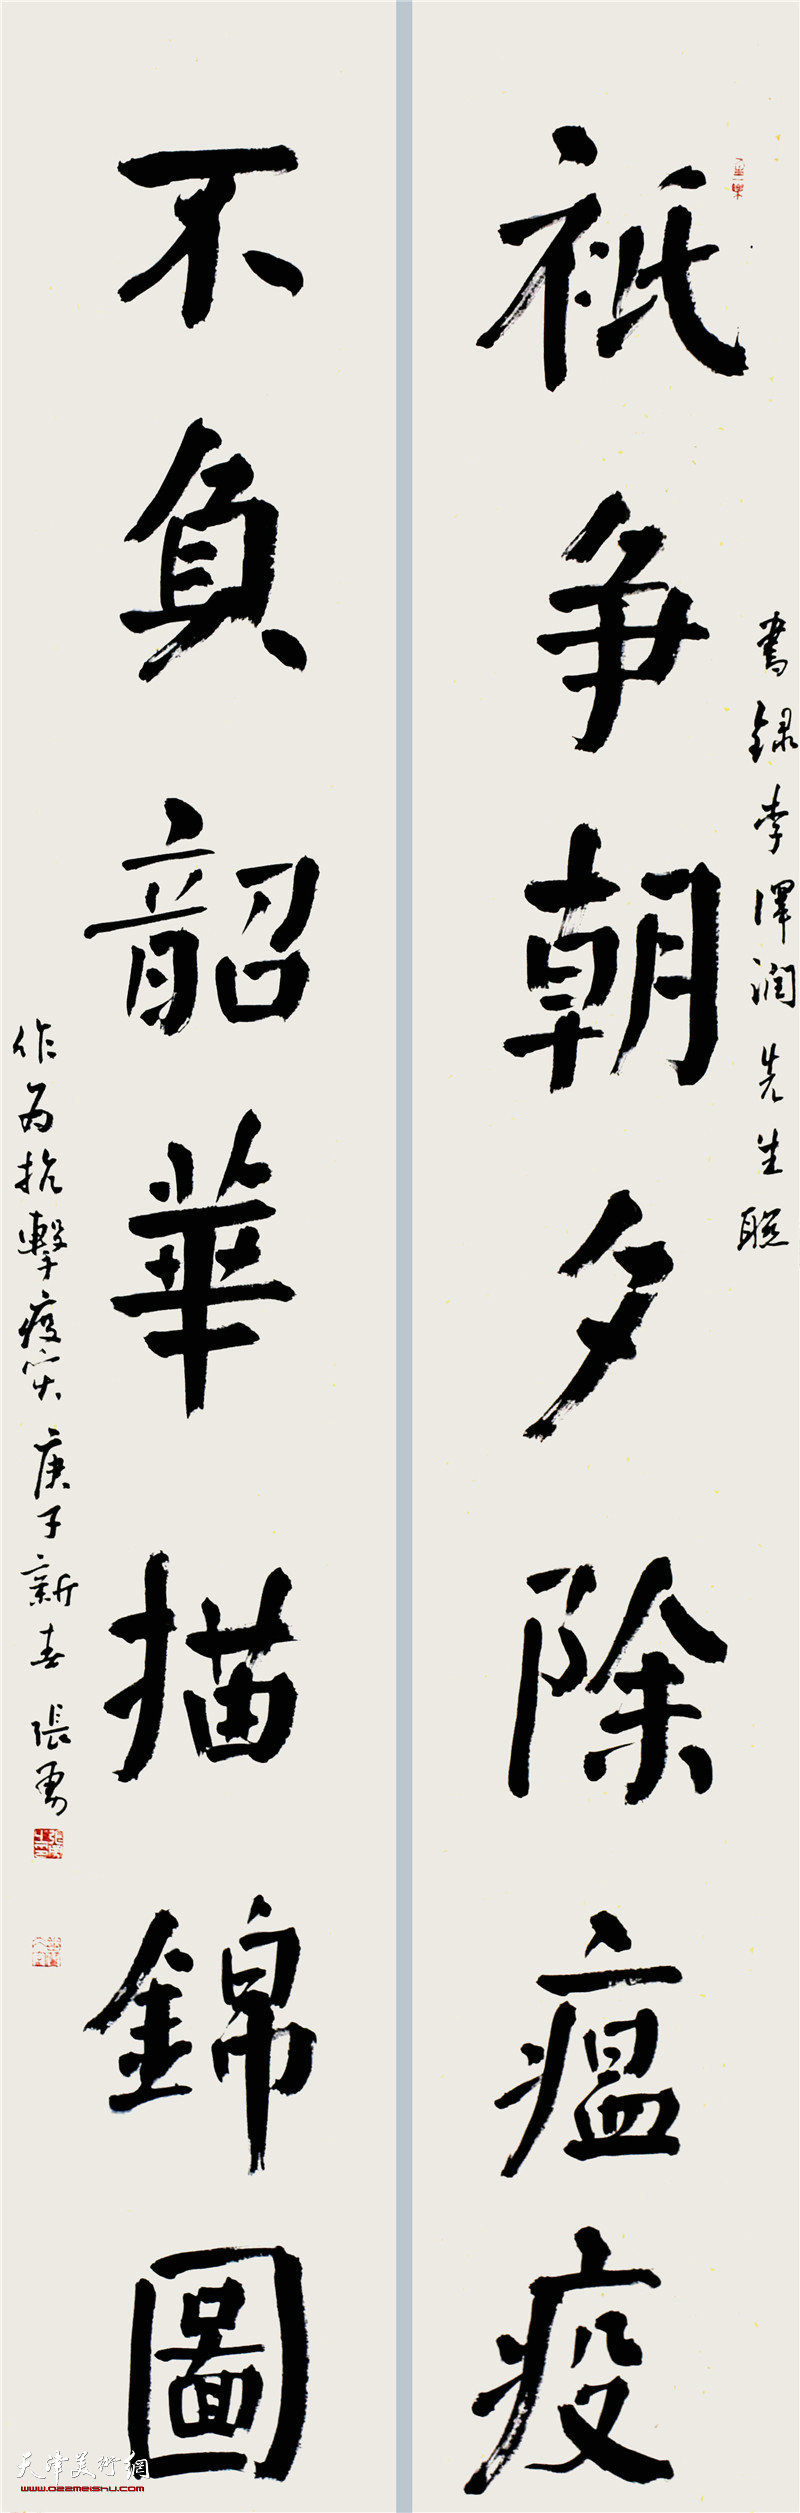 祇争朝夕除瘟疫
書録李澤润先生聯
不負韶華描錦圖
作为抗擊疫灾庚子新春張勇
天津美術網
www.022meishu.com